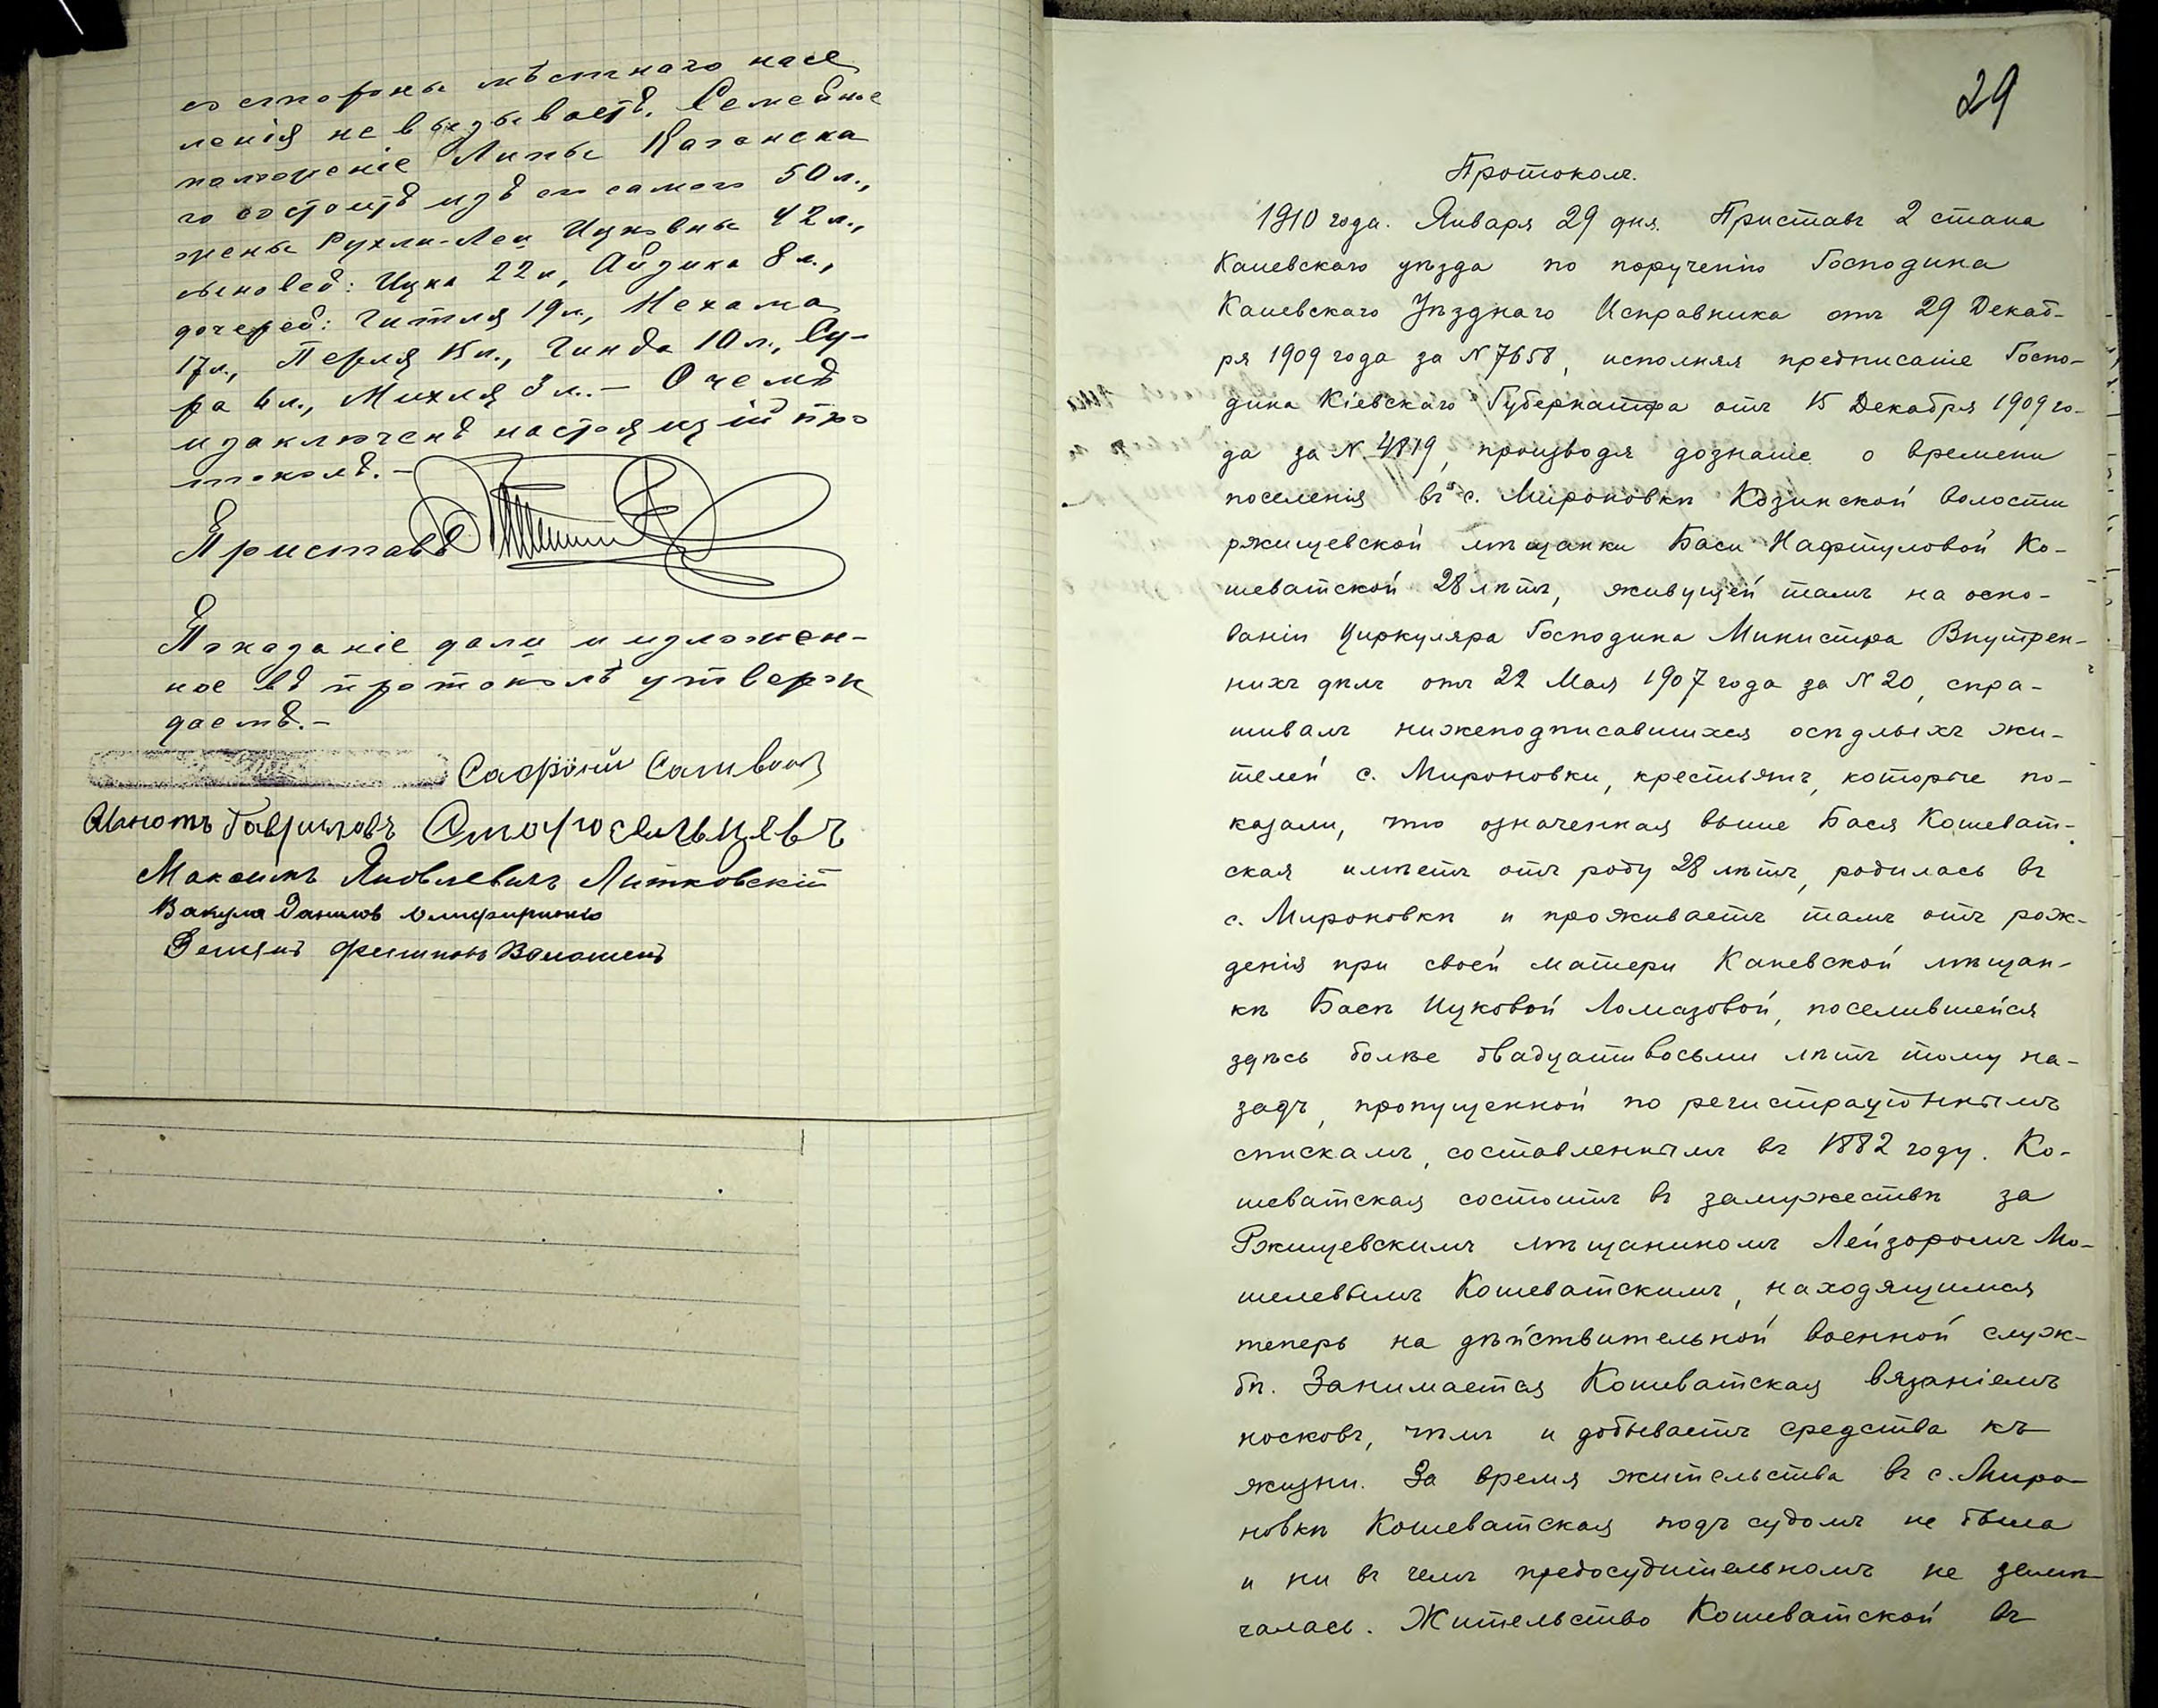 со стороны мѣстнаго насе
ленія не вызываетъ. Семейное
положеніе Липы Каганска
го состоитъ изъ его самого 50 л.,
жены Рухли-Леи Ицковны 42 л.,
сыновей: Ицка 22 л, Айзика 8 л.,
дочерей: Гитля 19 л., Нехама
17 л., Перля 15 л., Гинда 10 л., Су-
ра 6 л., Михля 3 л. – О чемъ
и заключенъ настоящій про
токолъ. –
Приставъ
Показаніе дали и изложен-
ное въ протоколѣ утверж
даемъ. –
Софроній
Гавриловъ Старосельцевъ
Максимъ Яковлевичъ Литковскій
Вакула Данилов
Демянъ Филиповъ Волошенъ
29
Протоколъ.
1910 года. Января 29 дня. Приставъ 2 стана
Каневскаго уѣзда по порученію Господина
Каневскаго Уѣзднаго Исправника отъ 29 Декаб-
ря 1909 года за N 7658, исполняя предписаніе Госпо-
дина Кіевскаго Губернатора отъ 15 Декабря 1909 го-
да за N 4819, производя дознаніе о времени
поселенія въ с. Мироновкѣ Козинской волости
ржищевской мѣщанки Баси Нафтуловой Ко-
шеватской 28 лѣтъ, живущей тамъ на осно-
ваніи Циркуляра Господина Министра Внутрен-
нихъ дѣлъ отъ 22 Мая 1907 года за N 20, спра-
шивалъ нижеподписавшихся осѣдлыхъ жи-
телей с. Мироновки, крестьянъ, которые по-
казали, что означенная выше Бася Кошеват-
ская имѣетъ отъ роду 28 лѣтъ, родилась въ
с. Мироновкѣ и проживаетъ тамъ отъ рож-
денія при своей матери Каневской мѣщан-
кѣ Басѣ Ицковой Ломазовой, поселившейся
здѣсь болѣе двадцати восьми лѣтъ тому на-
задъ, пропущенной по регистраціоннымъ
спискамъ, составленнымъ въ 1882 году. Ко-
шеватская состоитъ въ замужествѣ за
Ржищевскимъ мѣщаниномъ Лейзоромъ Мо-
шелевымъ Кошеватскимъ, находящимся
теперь на дѣйствительной военной служ-
бѣ. Занимается Кошеватская вязаніемъ
носковъ, чѣмъ и добываетъ средства къ
жизни. За время жительства въ с. Миро-
новкѣ Кошеватская подъ судомъ не была
и ни въ чемъ предосудительномъ не замѣ-
чалась. Жительство Кошеватской въ